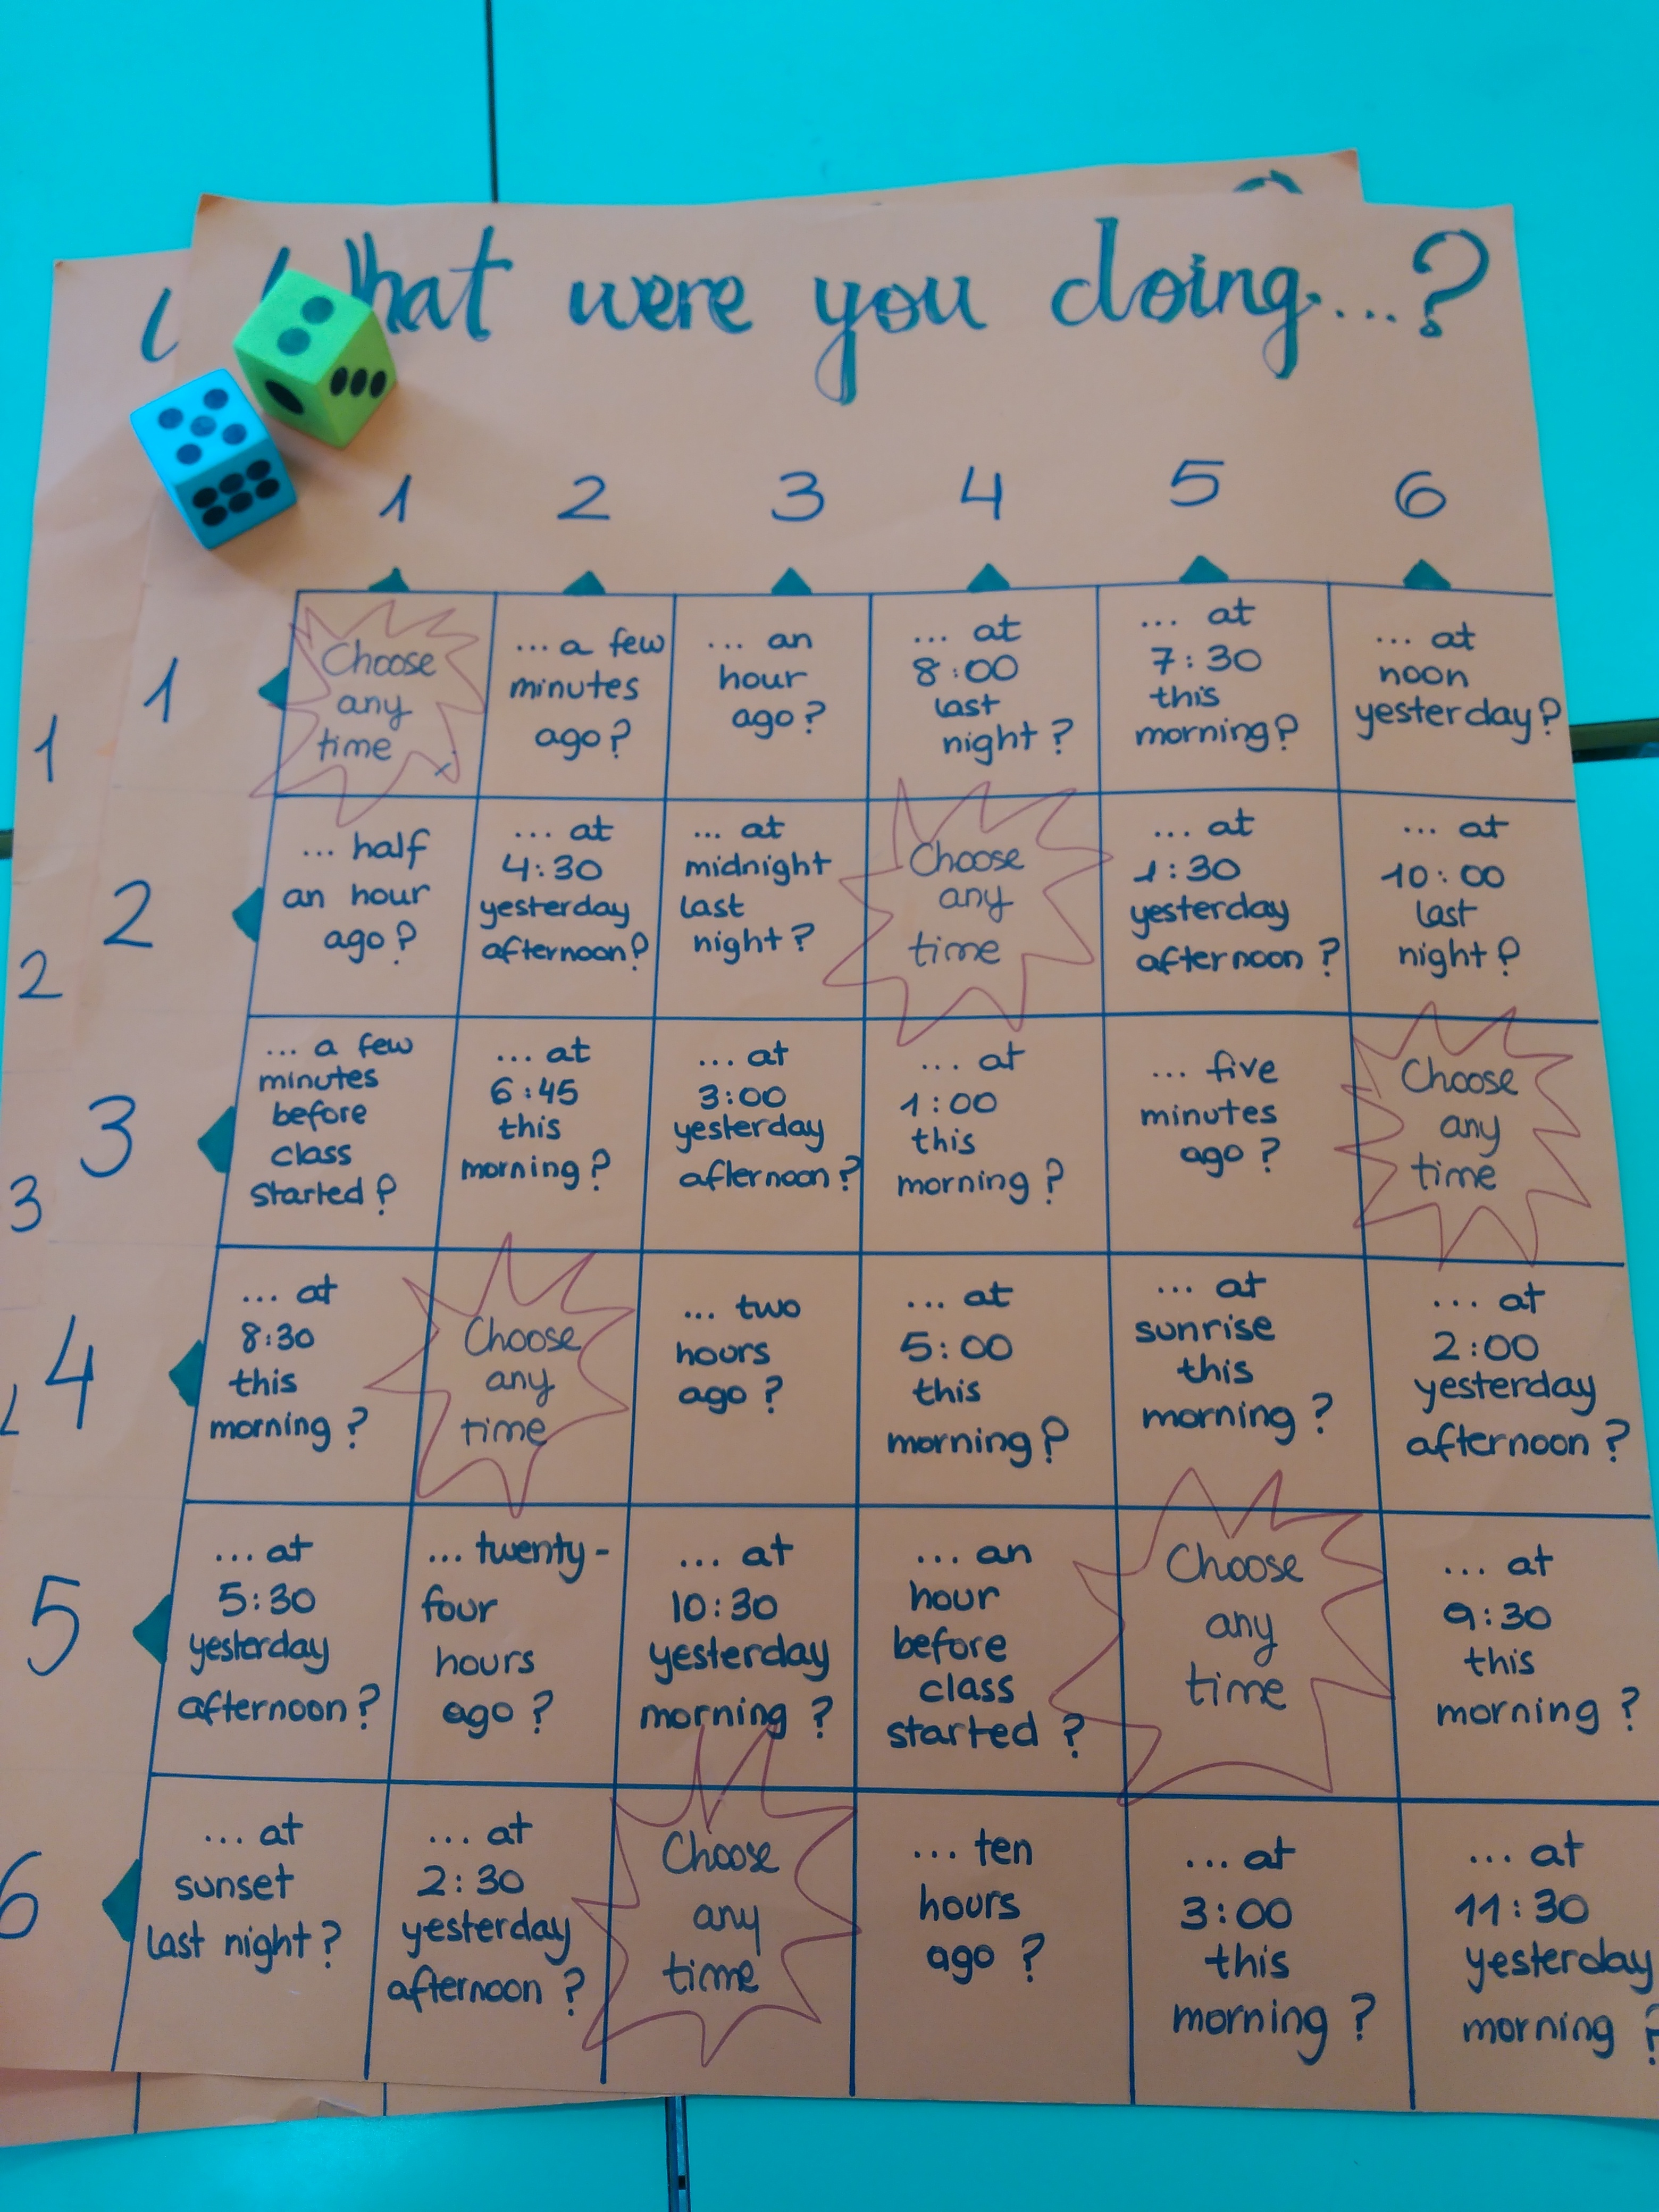 What were you doing...?
1 2 3 4 5 6
1
Choose
any
time
... a few
minutes
ago?
... an
hour
ago?
... at
8:00
last
night?
... at
7:30
this
morning?
... at
noon
yesterday?
1
2
... half
an hour
ago?
... at
4:30
yesterday
afternoon?
... at
midnight
last
night?
Choose
any
time
... at
1:30
yesterday
afternoon?
... at
10:00
last
night?
2
3
... a few
minutes
before
class
started?
... at
6:45
this
morning?
... at
3:00
yesterday
afternoon?
... at
1:00
this
morning?
... five
minutes
ago?
Choose
any
time
3
4
... at
8:30
this
morning?
Choose
any
time
... two
hours
ago?
... at
5:00
this
morning?
... at
sunrise
this
morning?
... at
2:00
yesterday
afternoon?
5
... at
5:30
yesterday
afternoon?
... twenty-
four
hours
ago?
... at
10:30
yesterday
morning?
... an
hour
before
class
started?
Choose
any
time
... at
9:30
this
morning?
6
... at
sunset
last night?
... at
2:30
yesterday
afternoon?
Choose
any
time
... ten
hours
ago?
... at
3:00
this
morning?
... at
11:30
yesterday
morning?